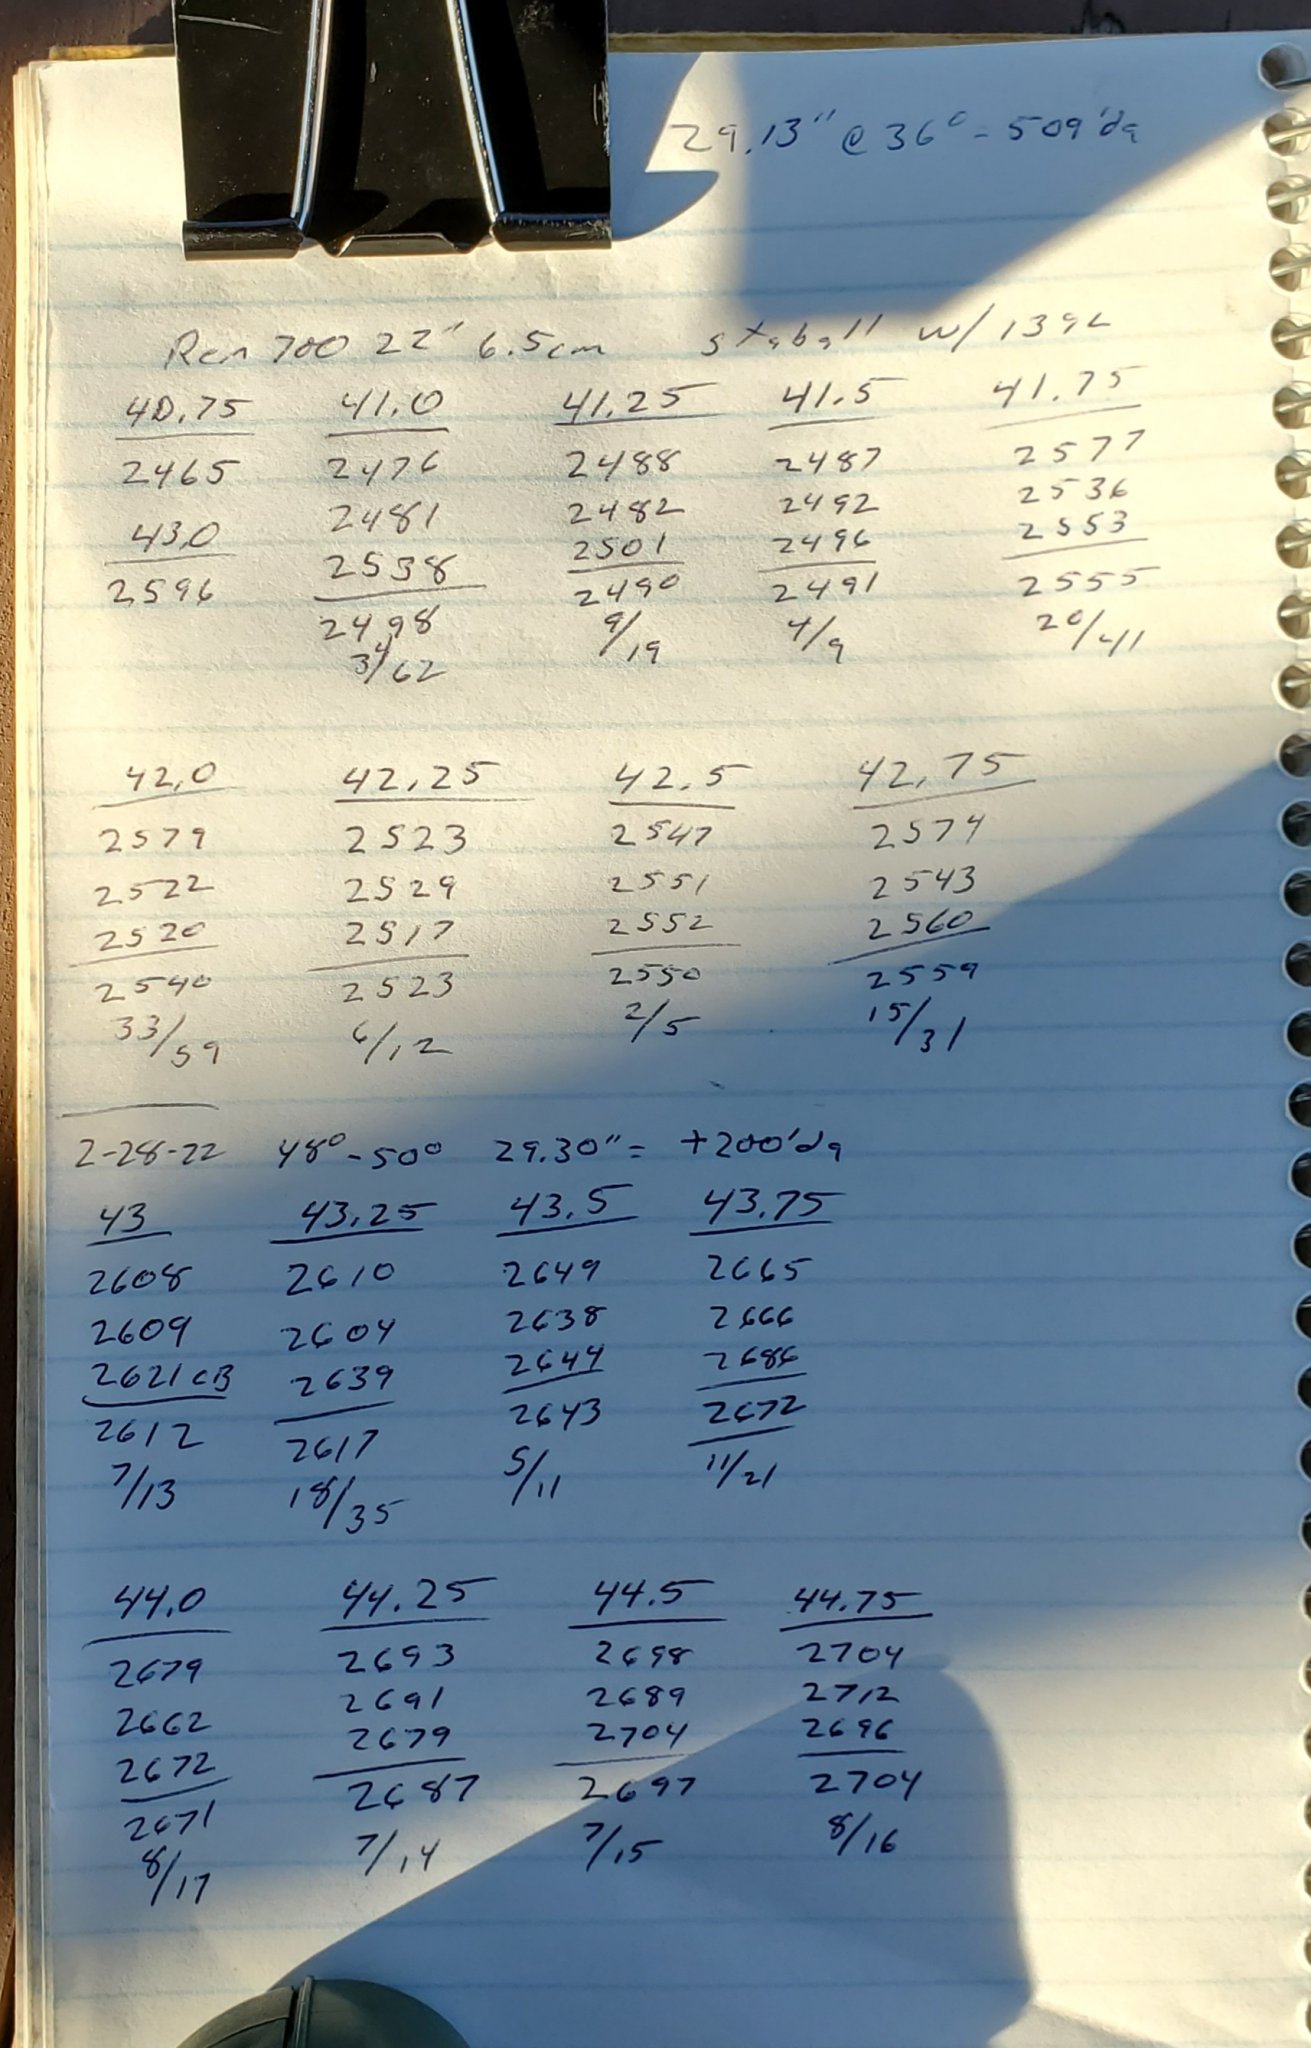 29.13" @ 36° = 509'da
Rem 700 22" 6.5cm staball w/ 139L
40.75 41.0 41.25 41.5 41.75
2465 2476 2488 2487 2577
2481 2482 2492 2536
43.0 2538 2501 2496 2553
2596 2498 2490 2491 2555
34/62 9/19 4/9 20/41
42.0 42.25 42.5 42.75
2579 2523 2547 2574
2522 2529 2551 2543
2520 2517 2552 2560
2540 2523 2550 2559
33/59 6/12 2/5 15/31
2-28-22 48°-50° 29.30" = +200'da
43 43.25 43.5 43.75
2608 2610 2649 2665
2609 2604 2638 2666
2621 CB 2639 2644 2686
2612 2617 2643 2672
7/13 18/35 5/11 11/21
44.0 44.25 44.5 44.75
2679 2693 2698 2704
2662 2691 2689 2712
2672 2679 2704 2696
2671 2687 2697 2704
8/17 7/14 7/15 8/16